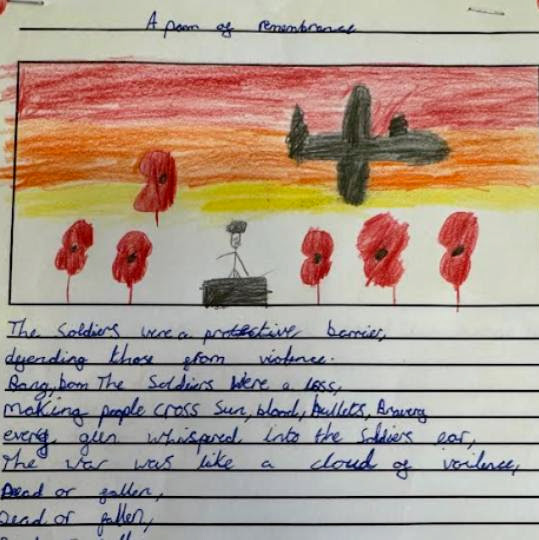 A poem of remembrance
The Soldiers were a protective barrier,
defending those from violence.
Bang, bom The Soldiers were a loss,
Making people cross Sun, blood, bullets, Bravery
every, gun whispered into the Soldiers ear,
The war was like a cloud of
Dead or fallen,
Dead or fallen,